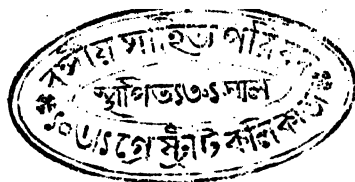 বঙ্গীয় সাহিত্য পরিষৎ
স্থাপিত ১৩০১ সাল
গ্রে ষ্ট্রীট কলিকাতা